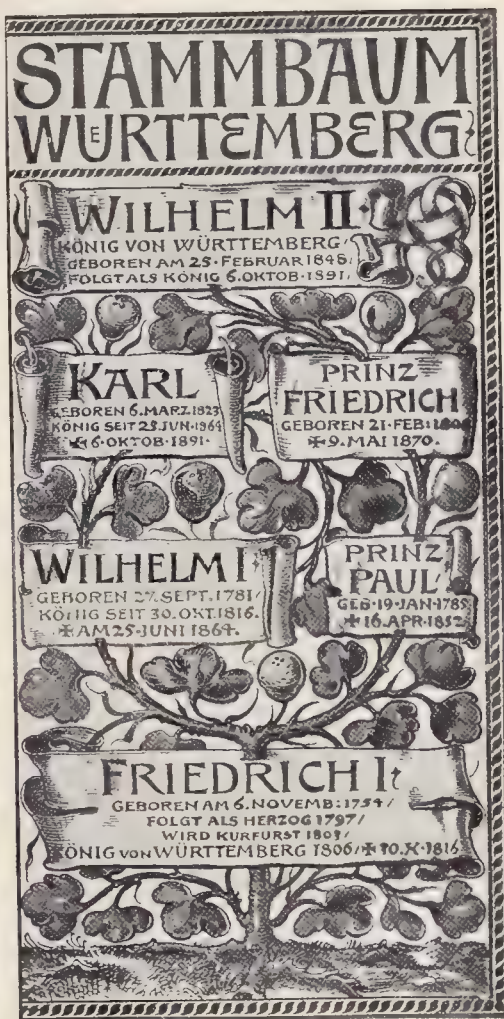 STAMMBAUM
WUERTTEMBERG
WILHELM II.
KÖNIG VON WÜRTTEMBERG/
GEBOREN AM 25. FEBRUAR 1848/
FOLGT ALS KÖNIG 6. OKTOB. 1891/
KARL
GEBOREN 6. MARZ. 1823
KÖNIG SEIT 25. JUN. 1864
✠ 6. OKTOB. 1891.
PRINZ
FRIEDRICH
GEBOREN 21. FEB: 1808
✠ 9. MAI 1870.
WILHELM I.
GEBOREN 27. SEPT. 1781/
KÖNIG SEIT 30. OKT. 1816.
✠ AM 25. JUNI 1864.
PRINZ
PAUL
GEB. 19. JAN. 1785
✠ 16. APR. 1852
FRIEDRICH I.
GEBOREN AM 6. NOVEMB: 1754/
FOLGT ALS HERZOG 1797/
WIRD KURFURST 1803/
KÖNIG VON WÜRTTEMBERG 1806/ ✠ 1816